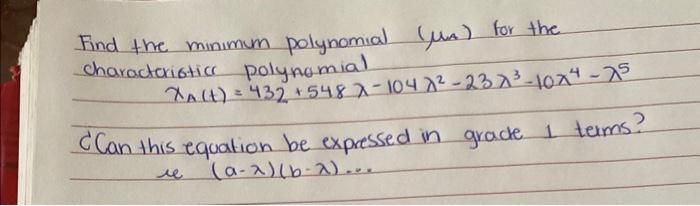 Find the minimum polynomial (μA) for the
characteristicc polynomial
χA(t) = 432 + 548 λ - 104 λ² - 23 λ³ - 10 λ⁴ - λ⁵
¿Can this equation be expressed in grade 1 terms?
ie (a-λ)(b-λ)...